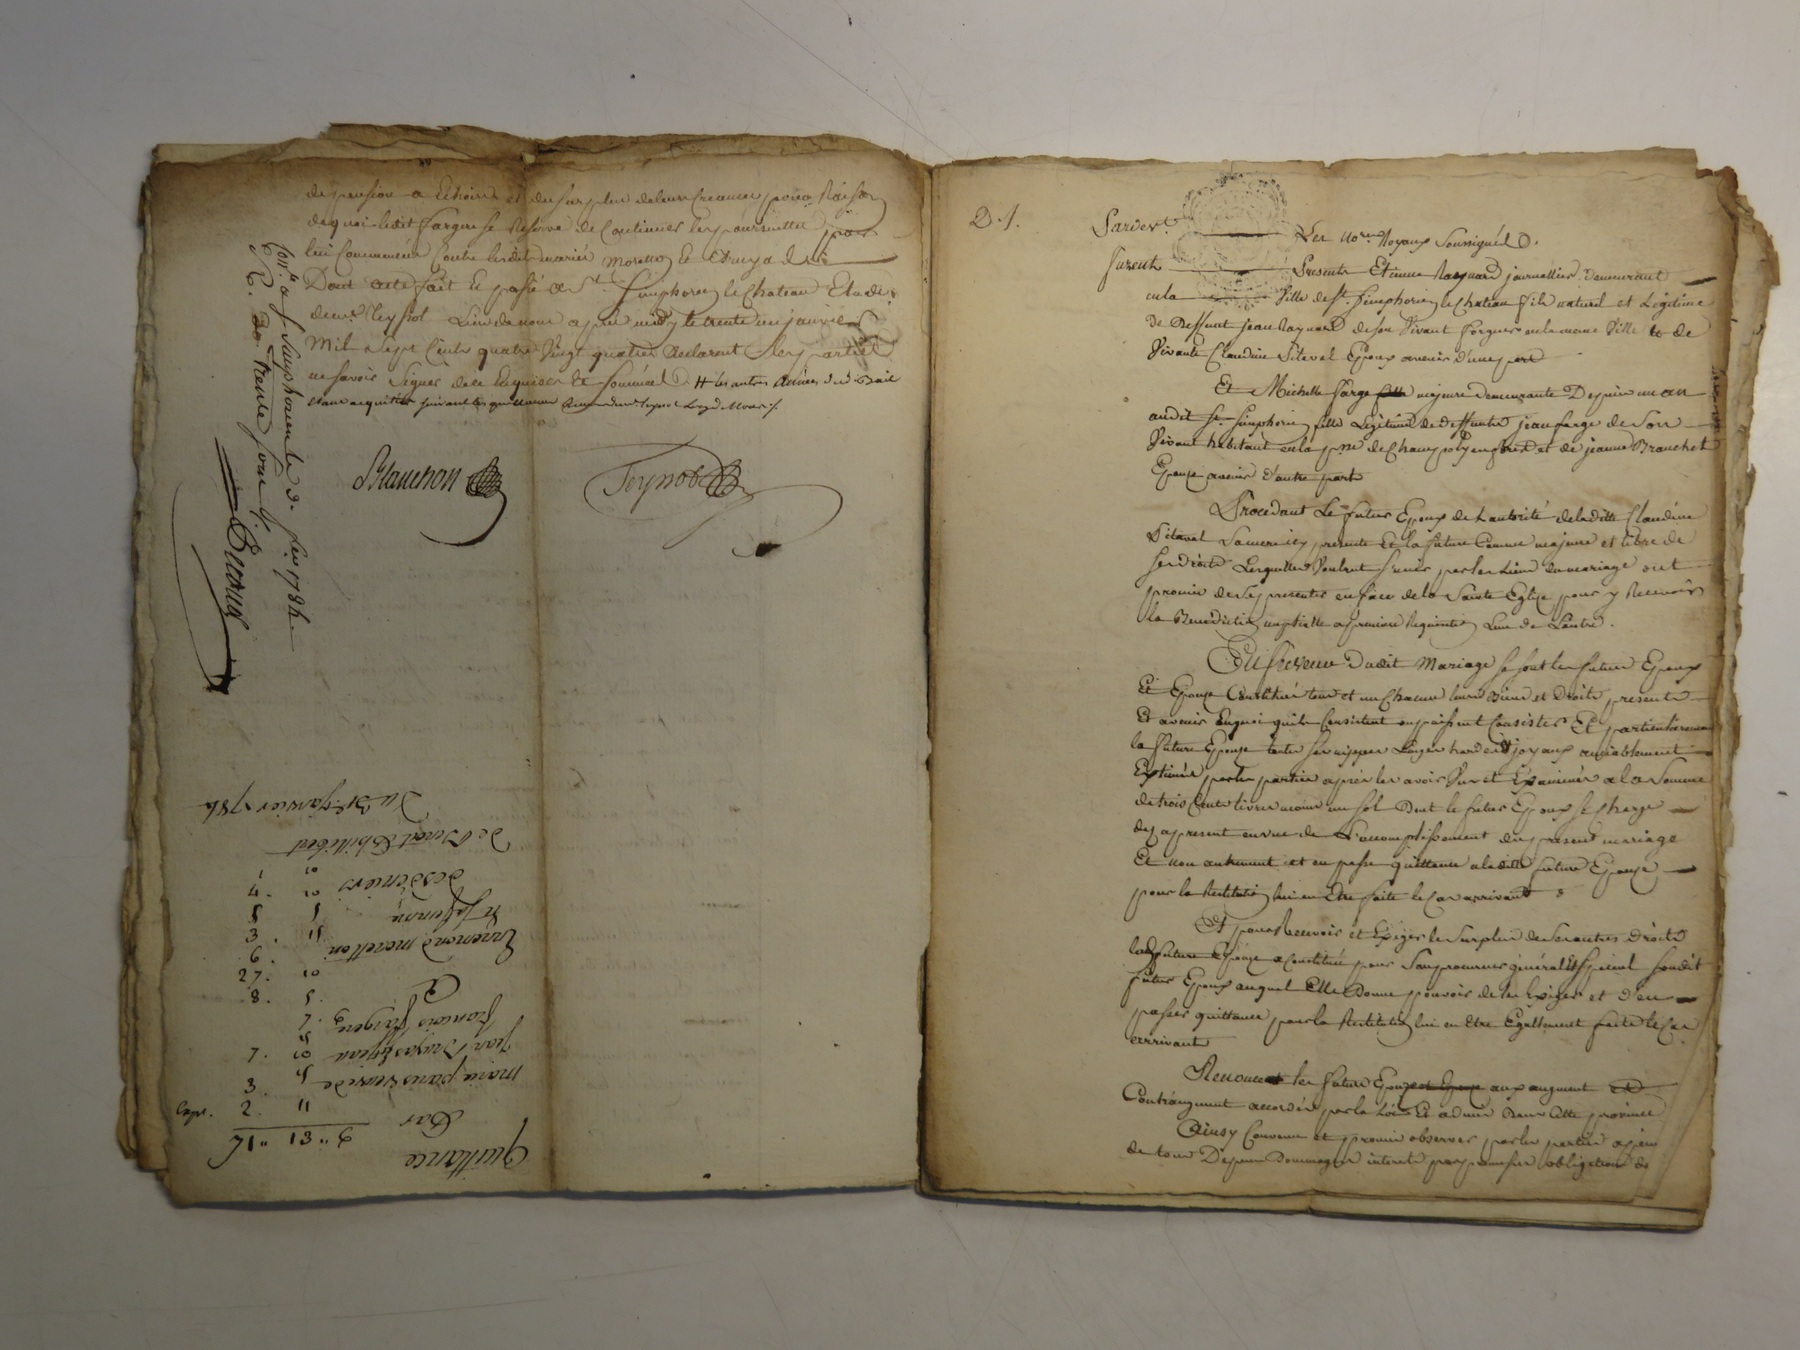 de pension a Echoir et du surplus de leurs Creances pour Raison
de quoi ledit fargue se Reserve de Continuer les poursuittes par
lui Commencé Contre lesdits mariés
Dont acte fait et passé a St. Simphorien le Chateau Etude
de me Teynot Lun de nous apres midy le trente un janvier
Mil Sept Cents quatre Vingt quatre declarent les parties
ne savoir signer de ce Enquises Et Sommées
Blanchon
Teynot
Con.le a St Simphorien le 2. fev. 1784
R. trente sous
Quittance
Par
marie paris veuve de
jean
françois
Ennemond
et
des deniers
de Benoit
Du 31e janvier 1784
2. 11
3. 5
7. 10
8. 5.
27. 10
6.
3. 15
4. 10
21 " 13 " 9
D 1.
Pardevt. Les No.res Royaux Soussignés.
furent Presents Etienne Raynard journallier demeurant
en la Ville de St. Simphorien le chateau fils naturel et Legitime
de Deffunt jean Raynard de son Vivant forgeur en la meme Ville et de
Vivante Claudine Pitaval Epoux avenir d'une part
Et Michelle farge fille majeure demeurante Depuis un an
audit St. Simphorien fille Legitime de deffunts jean farge de son
Vivant habitant en la psse de Champoly en forest et de jeanne Branchet
Epouse avenir d'autre part
Procedant Le futur Epoux de L'autorité de ladite Claudine
Pitaval Sa mere icy presente Et la future Comme majeure et libre de
ses droits Lesquelles Voulant s'unir par les Liens du mariage ont
promis de se presenter en face de la Sainte Eglise pour y Recevoir
la Benediction nuptialle a premiere Requisition Lun de Lautre.
En faveur Dudit Mariage se sont les futurs Epoux
Et Epouse Constitué tous et un Chacun leurs Biens et Droits presents
Et avenir Enquoi quils Consistent ou puissent Consister Et particulierement
la future Epouse toutes ses nippes Linges hardes et joyaux amiablement
Estimés par les parties après les avoir Vus et Examinés a la Somme
de trois Cents livres moins un sol Dont le futur Epoux se charge
des apresent en vue de L'accomplissement du present mariage
Et non autrement et en passe quittance a ladite future Epouse
pour la Restitution lui en Etre faite le Cas arrivant
Et pour Recevoir et Exiger le Surplus de ses autres Droits
ladite future Epouse a Constitué pour Son procureur général Et Special Sondit
futur Epoux auquel Elle Donne pouvoir de les Exiger et d'en
passer quittance pour la Restitution lui en Etre Egallement faite le Cas
arrivant
Renoncent les futurs Epoux et Epouse aux augment Et
Contraugment accordés par les Loix Et admis Dans Cette province
Ainsy Convenu et promis observer par les parties a peine
de tous Depens Dommages interets par promesses obligations de